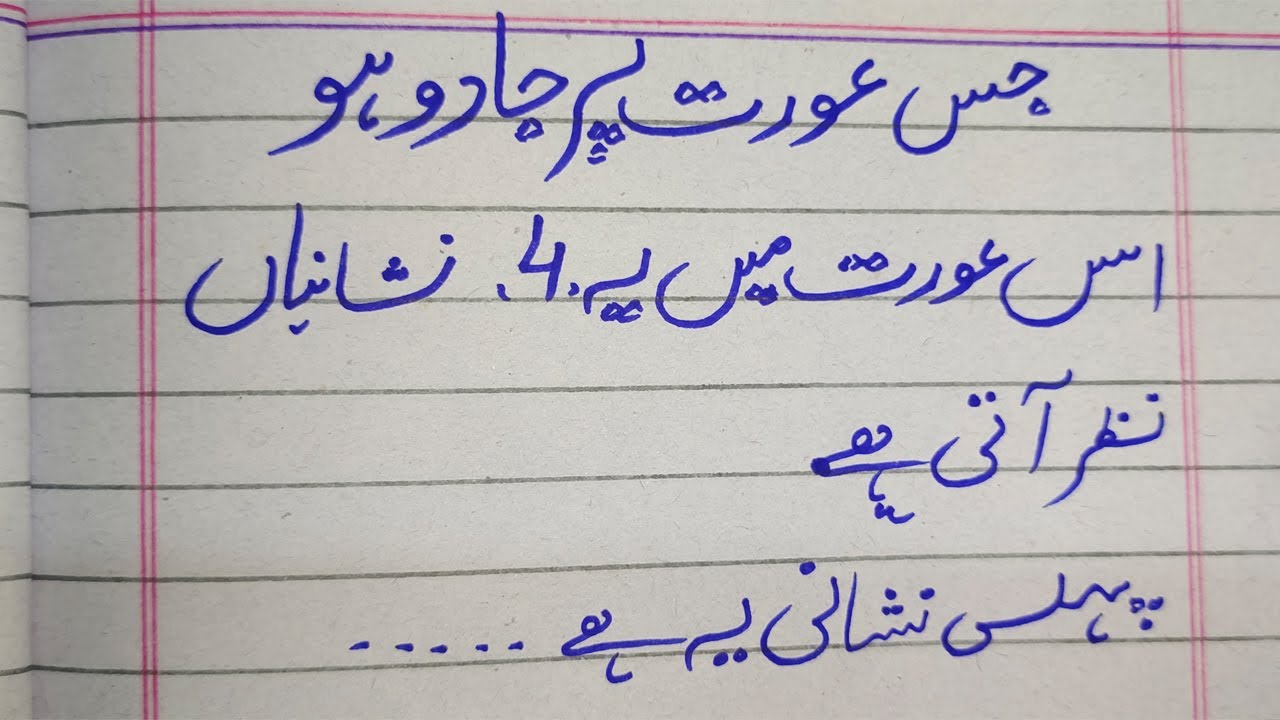 جس عورت پر جادو ہو
اس عورت میں یہ .4. نشانیاں
نظر آتی ہے
پہلی نشانی یہ ہے .....